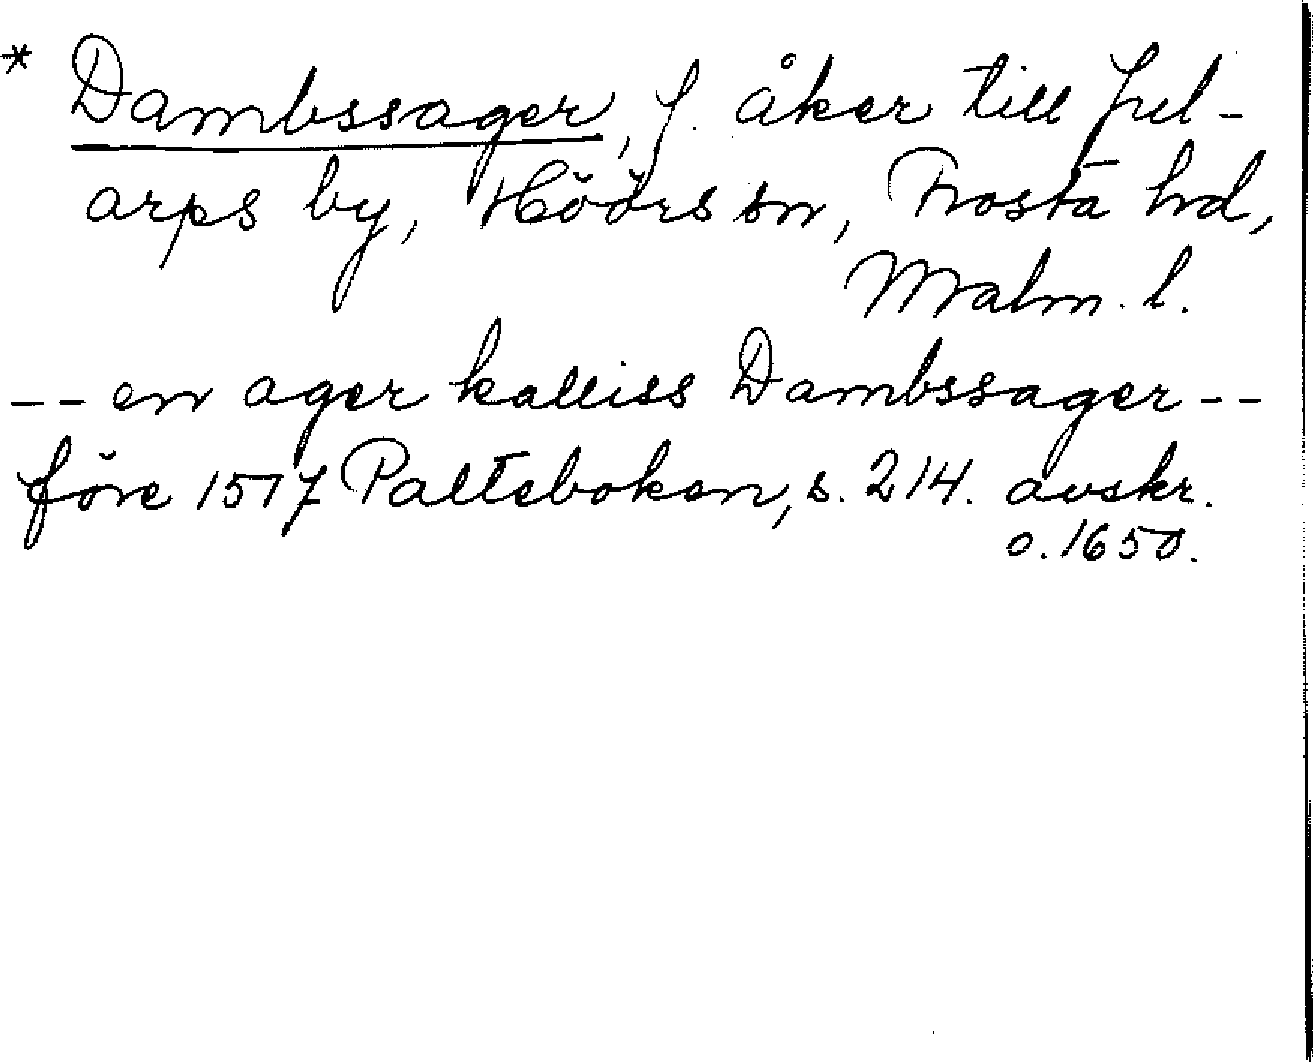 * Dambssager, f. åker till Jul-
arps by, Höörs sn, Frosta hd,
Malm. l.
-- en ager kalliss Dambssager --
före 1517 Palteboken, s. 214. avskr.
o. 1650.